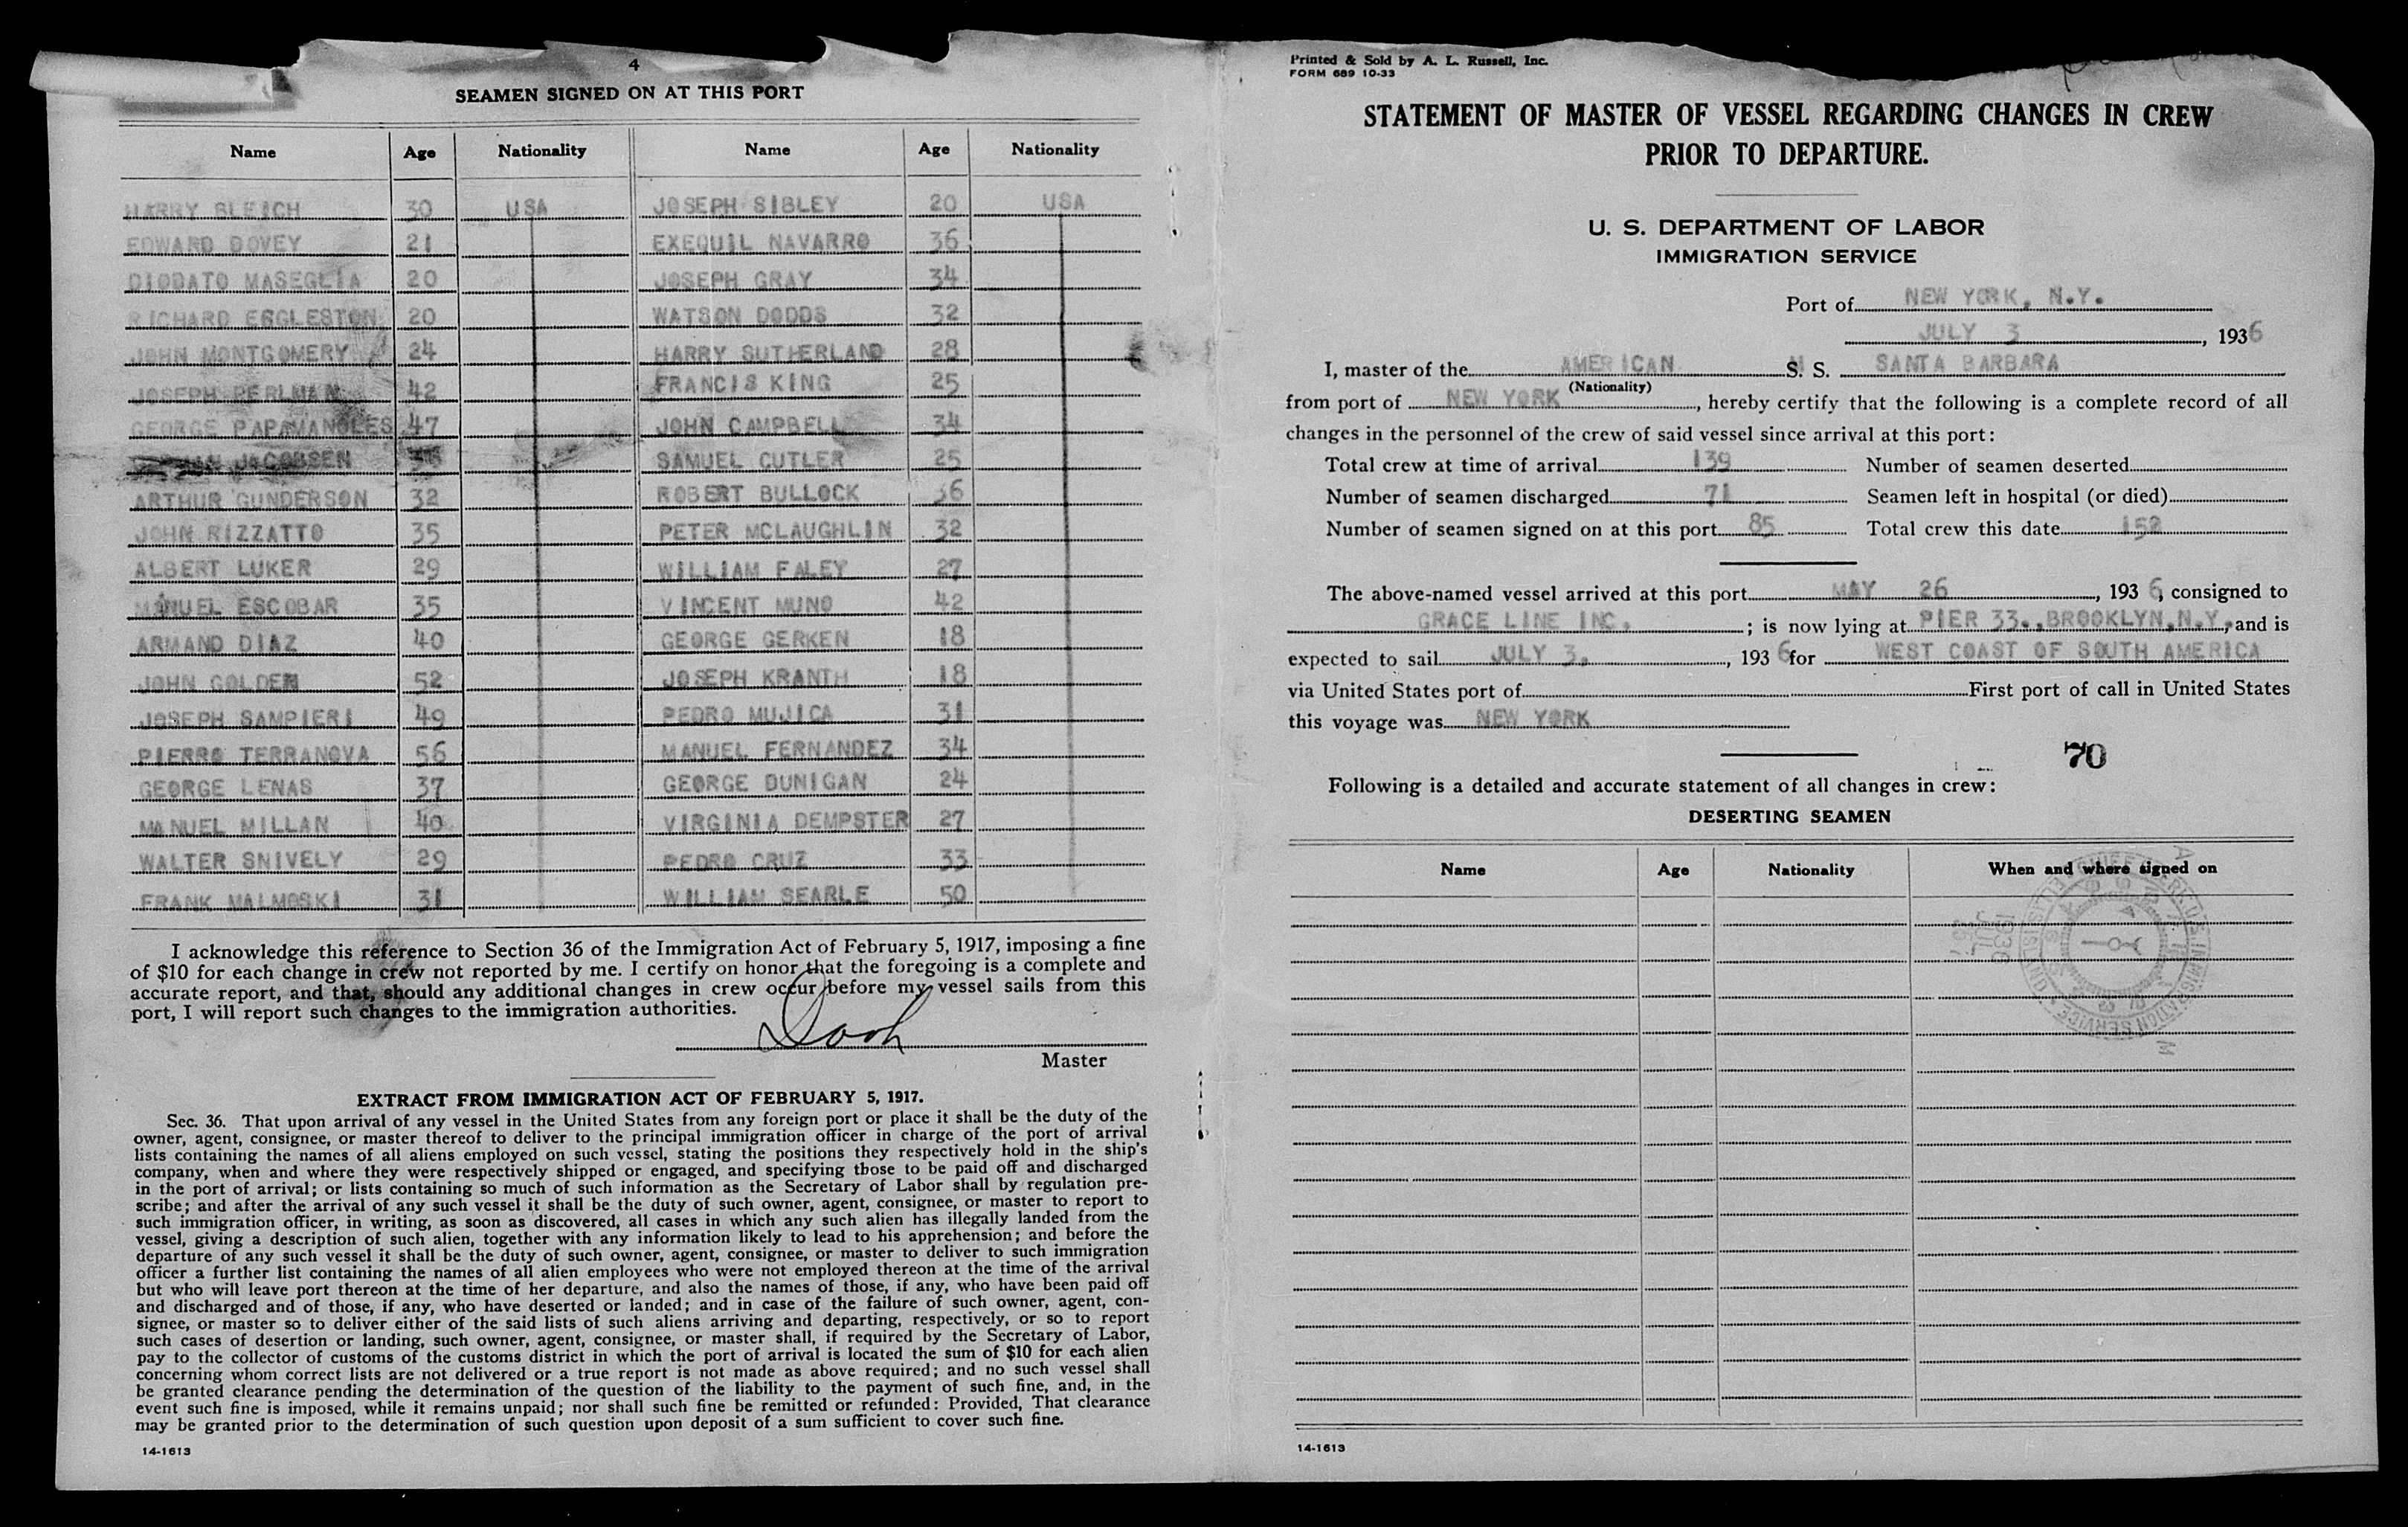 4
SEAMEN SIGNED ON AT THIS PORT
Name Age Nationality Name Age Nationality
HARRY BLEICH 30 USA JOSEPH SIBLEY 20 USA
EDWARD DOVEY 21 EXEQUIL NAVARRO 36
DIODATO MASEGLIA 20 JOSEPH GRAY 34
RICHARD EGGLESTON 20 WATSON DODDS 32
JOHN MONTGOMERY 24 HARRY SUTHERLAND 28
JOSEPH PERLMAN 42 FRANCIS KING 25
GEORGE PAPAMANOLES 47 JOHN CAMPBELL 34
JACOBSEN SAMUEL CUTLER 25
ARTHUR GUNDERSON 32 ROBERT BULLOCK 36
JOHN RIZZATTO 35 PETER MCLAUGHLIN 32
ALBERT LUKER 29 WILLIAM FALEY 27
MANUEL ESCOBAR 35 VINCENT MUNO 42
ARMAND DIAZ 40 GEORGE GERKEN 18
JOHN GOLDEN 52 JOSEPH KRANTH 18
JOSEPH SAMPIERI 49 PEDRO MUJICA 31
PIERRO TERRANOVA 56 MANUEL FERNANDEZ 34
GEORGE LENAS 37 GEORGE DUNIGAN 24
MANUEL MILLAN 40 VIRGINIA DEMPSTER 27
WALTER SNIVELY 29 PEDRO CRUZ 33
FRANK MALMOSKI 31 WILLIAM SEARLE 50
I acknowledge this reference to Section 36 of the Immigration Act of February 5, 1917, imposing a fine
of $10 for each change in crew not reported by me. I certify on honor that the foregoing is a complete and
accurate report, and that, should any additional changes in crew occur before my vessel sails from this
port, I will report such changes to the immigration authorities.
Master
EXTRACT FROM IMMIGRATION ACT OF FEBRUARY 5, 1917.
Sec. 36. That upon arrival of any vessel in the United States from any foreign port or place it shall be the duty of the
owner, agent, consignee, or master thereof to deliver to the principal immigration officer in charge of the port of arrival
lists containing the names of all aliens employed on such vessel, stating the positions they respectively hold in the ship's
company, when and where they were respectively shipped or engaged, and specifying those to be paid off and discharged
in the port of arrival; or lists containing so much of such information as the Secretary of Labor shall by regulation pre-
scribe; and after the arrival of any such vessel it shall be the duty of such owner, agent, consignee, or master to report to
such immigration officer, in writing, as soon as discovered, all cases in which any such alien has illegally landed from the
vessel, giving a description of such alien, together with any information likely to lead to his apprehension; and before the
departure of any such vessel it shall be the duty of such owner, agent, consignee, or master to deliver to such immigration
officer a further list containing the names of all alien employees who were not employed thereon at the time of the arrival
but who will leave port thereon at the time of her departure, and also the names of those, if any, who have been paid off
and discharged and of those, if any, who have deserted or landed; and in case of the failure of such owner, agent, con-
signee, or master so to deliver either of the said lists of such aliens arriving and departing, respectively, or so to report
such cases of desertion or landing, such owner, agent, consignee, or master shall, if required by the Secretary of Labor,
pay to the collector of customs of the customs district in which the port of arrival is located the sum of $10 for each alien
concerning whom correct lists are not delivered or a true report is not made as above required; and no such vessel shall
be granted clearance pending the determination of the question of the liability to the payment of such fine, and, in the
event such fine is imposed, while it remains unpaid; nor shall such fine be remitted or refunded: Provided, That clearance
may be granted prior to the determination of such question upon deposit of a sum sufficient to cover such fine.
14-1613
Printed & Sold by A. L. Russell, Inc.
FORM 689 10-33
STATEMENT OF MASTER OF VESSEL REGARDING CHANGES IN CREW
PRIOR TO DEPARTURE.
U. S. DEPARTMENT OF LABOR
IMMIGRATION SERVICE
Port of NEW YORK, N.Y.
JULY 3, 1936
I, master of the AMERICAN S. S. SANTA BARBARA
(Nationality)
from port of NEW YORK, hereby certify that the following is a complete record of all
changes in the personnel of the crew of said vessel since arrival at this port:
Total crew at time of arrival 139 Number of seamen deserted
Number of seamen discharged 71 Seamen left in hospital (or died)
Number of seamen signed on at this port 85 Total crew this date 152
The above-named vessel arrived at this port MAY 26, 1936, consigned to
GRACE LINE INC.; is now lying at PIER 33., BROOKLYN, N.Y, and is
expected to sail JULY 3, 1936 for WEST COAST OF SOUTH AMERICA
via United States port of First port of call in United States
this voyage was NEW YORK
70
Following is a detailed and accurate statement of all changes in crew:
DESERTING SEAMEN
Name Age Nationality When and where signed on
14-1613